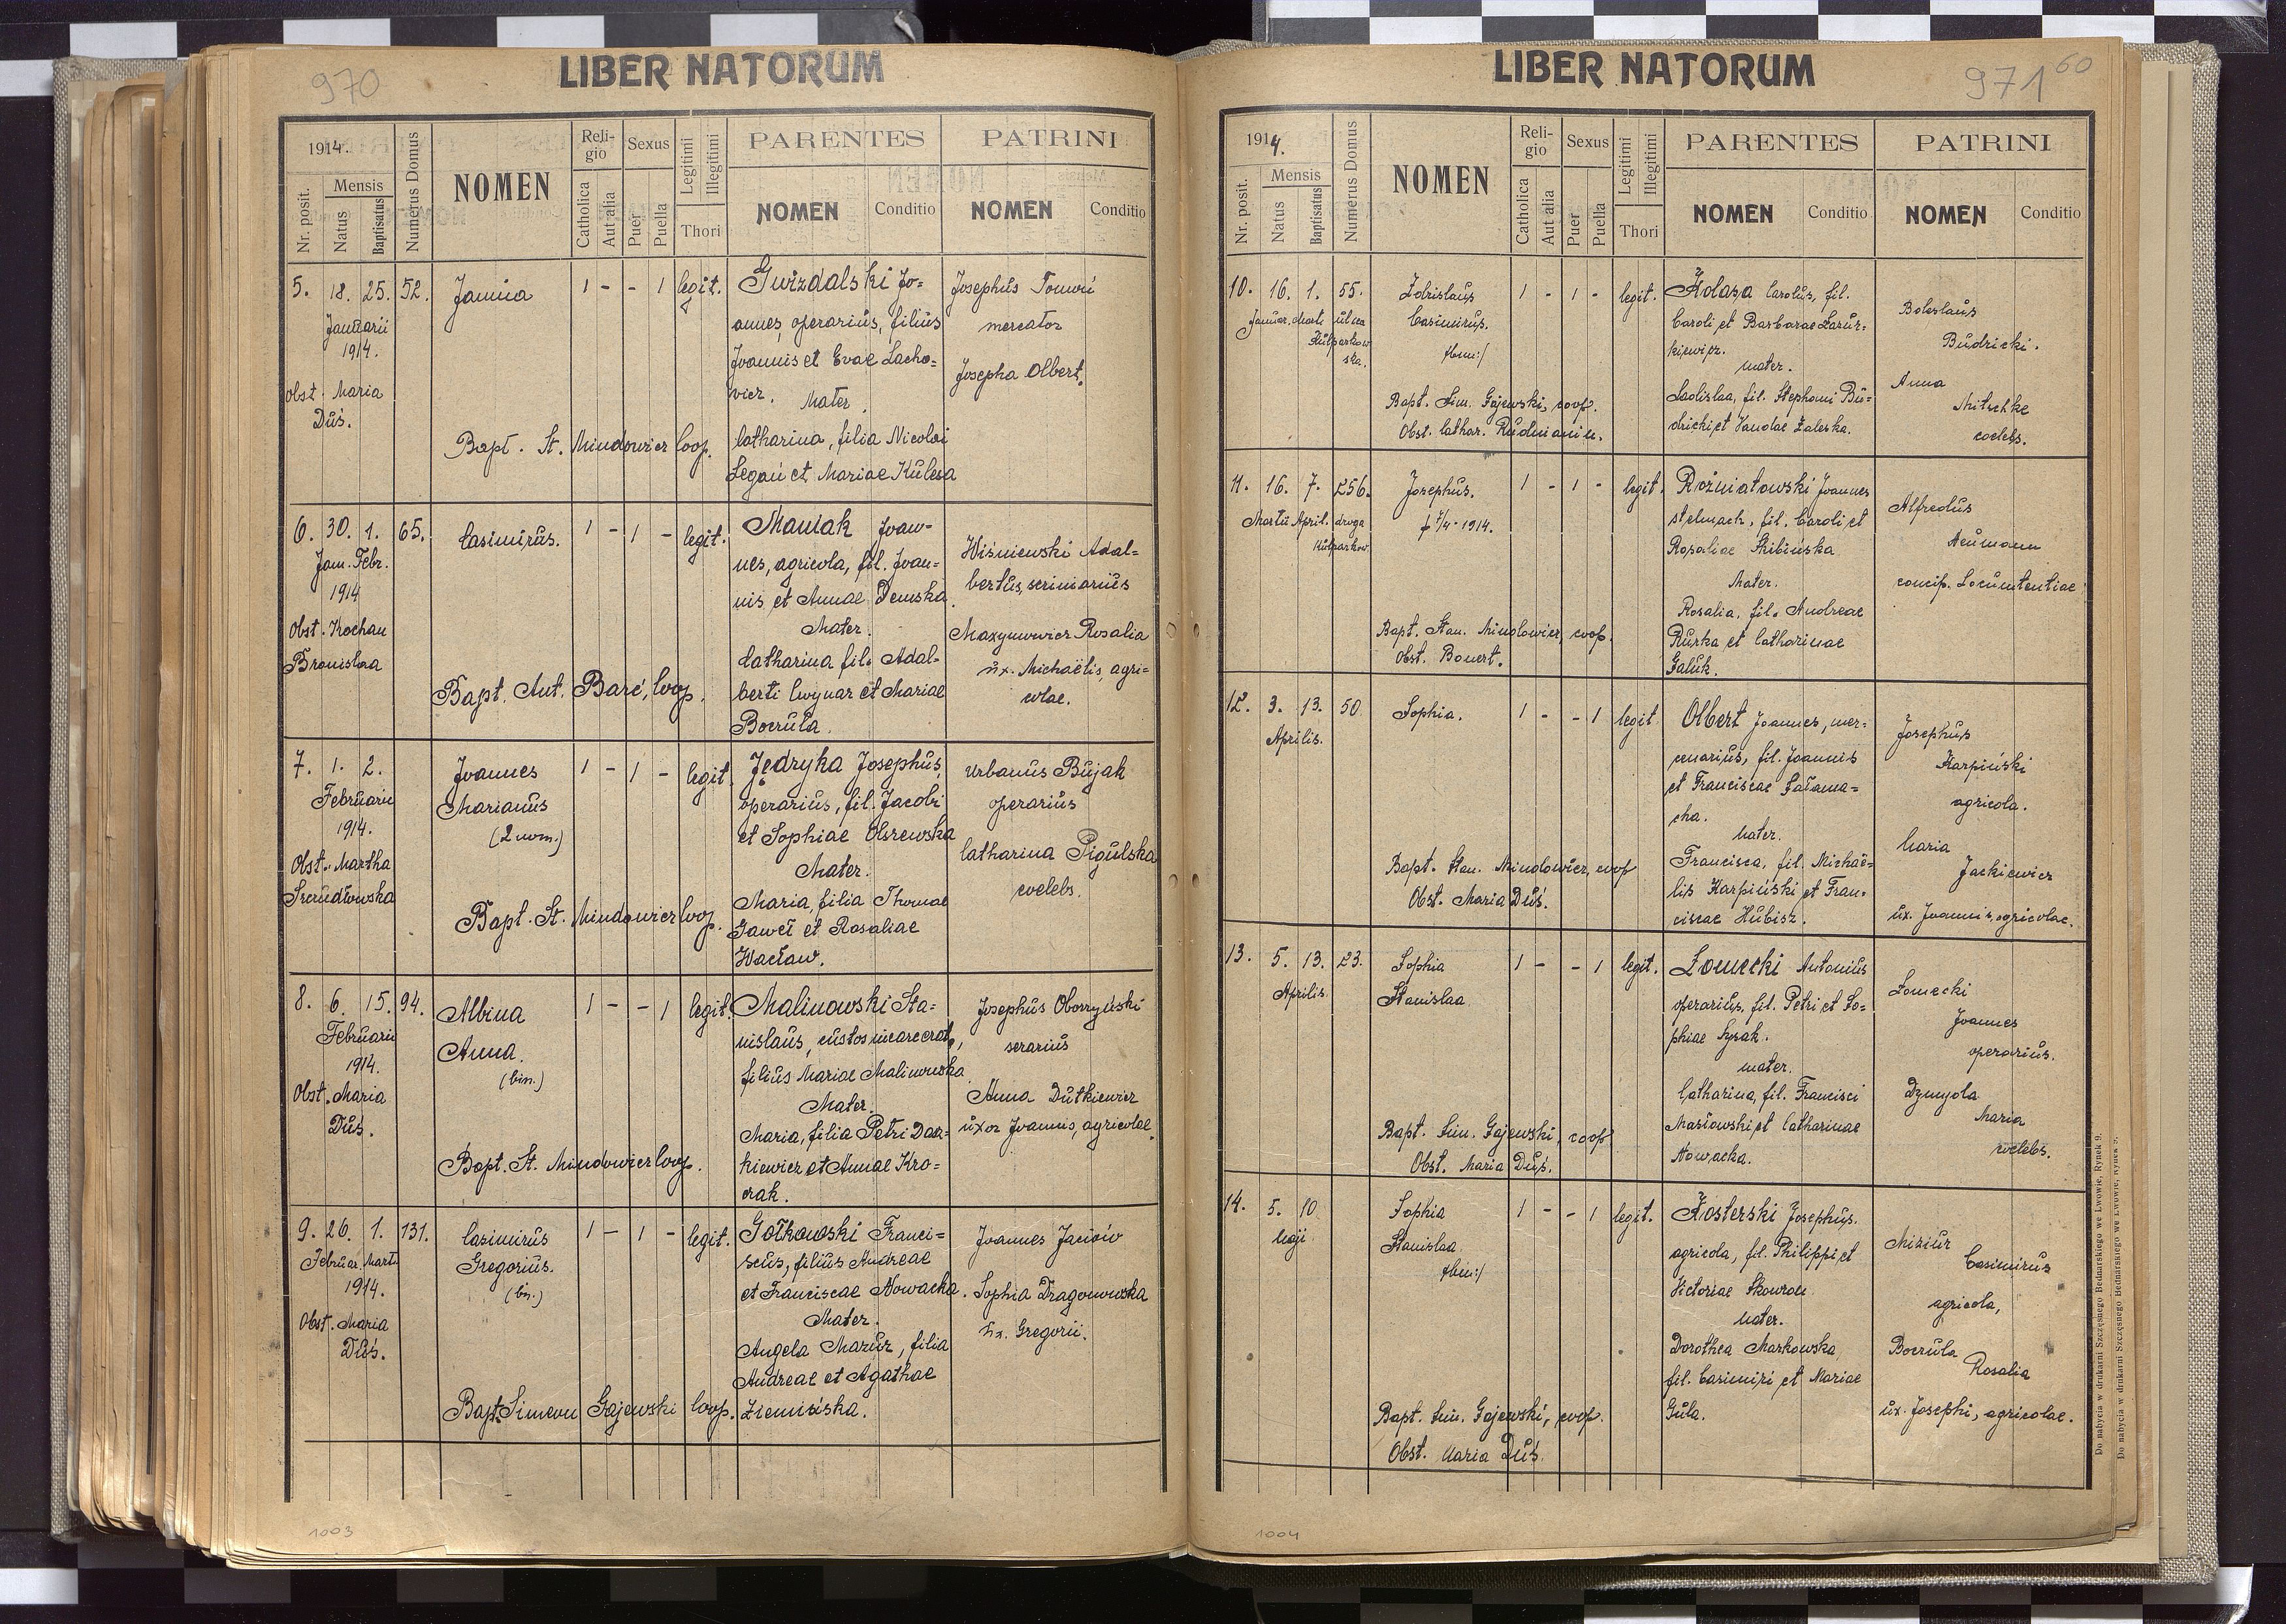 970
LIBER NATORUM
1914.
Nr. posit.
Mensis
Natus
Baptisatus
Numerus Domus
NOMEN
Religio
Catholica
Aut alia
Sexus
Puer
Puella
Legitimi
Illegitimi
Thori
PARENTES
NOMEN
Conditio
PATRINI
NOMEN
Conditio
5. 18. 25. 52.
Januarii
1914.
Obst. Maria
Duś.
Janina
1 - - 1 legit.
Bapt. St. Mindowicz Coop.
Gwizdalski Jo=
annes, operarius, filius
Joannis et Evae Lacho=
wicz. Mater.
Catharina, filia Nicolai
Legań et Mariae Kulesa
Josephus Tomoń
mercator
Josepha Olbert.
6. 30. 1. 65.
Jan. Febr.
1914
Obst. Kochan
Bronislaa
Casimirus.
1 - 1 - legit.
Bapt. Ant. Barć, Coop.
Maniak Joan=
nes, agricola, fil. Joan=
nis et Annae Demska.
Mater.
Catharina fil. Adal=
berti Cwynar et Mariae
Boczula.
Wiśniewski Adal=
bertus, scriniarius
Maxymowicz Rosalia
ux. Michaëlis, agri=
colae.
7. 1. 2.
Februarii
1914.
Obst. Martha
Szczudłowska
Joannes
Marianus
(2 nom.)
1 - 1 - legit.
Bapt. St. Mindowicz Coop.
Jędryka Josephus,
operarius, fil. Jacobi
et Sophiae Olszewska
Mater.
Maria, filia Thomae
Gaweł et Rosaliae
Wacław.
Urbanus Bujak
operarius
Catharina Pigulska
coelebs.
8. 6. 15. 94.
Februarii
1914.
Obst. Maria
Duś.
Albina
Anna.
(bin.)
1 - - 1 legit.
Bapt. St. Mindowicz Coop.
Malinowski Sta=
nislaus, custos incarcerat.,
filius Mariae Malinowska
Mater.
Maria, filia Petri Dacz=
kiewicz et Annae Kro=
czak.
Josephus Oborzyński
serarius
Anna Dutkiewicz
uxor Joannis, agricolae.
9. 26. 1. 131.
Februar. Mart.
1914.
Obst. Maria
Duś.
Casimirus
Gregorius.
(bin.)
1 - 1 - legit.
Bapt. Simeon Gajewski Coop.
Gołkowski Franci=
scus, filius Andreae
et Franciscae Nowacka.
Mater.
Angela Mazur, filia
Andreae et Agathae
Ziemińska.
Joannes Jaciów
Sophia Dragonowska
ux. Gregorii.
1003
971
60
LIBER NATORUM
1914.
Nr. posit.
Mensis
Natus
Baptisatus
Numerus Domus
NOMEN
Religio
Catholica
Aut alia
Sexus
Puer
Puella
Legitimi
Illegitimi
Thori
PARENTES
NOMEN
Conditio
PATRINI
NOMEN
Conditio
10. 16. 1. 55.
Januar. Marti. ulica
Kulparkow
ska.
Zdzislaus
Casimirus.
/:bin:/
1 - 1 - legit.
Bapt. Sim. Gajewski, coop.
Obst. Cathar. Rudnianin.
Kolasa Carolus, fil.
Caroli et Barbarae Lazur=
kiewicz.
mater.
Ladislaa, fil. Stephani Bu=
dricki et Vandae Zaleska.
Boleslaus
Budricki.
Anna
Nitschke
coelebs.
11. 16. 7. 256.
Martii April. droga
Kulparkow.
Josephus.
† 7/4 1914.
1 - 1 - legit.
Bapt. Stan. Mindowicz, coop.
Obst. Bonert.
Rożniatowski Joannes
stelmach, fil. Caroli et
Rosaliae Skibińska
Mater.
Rosalia, fil. Andreae
Rurka et Catharinae
Galuk.
Alfredus
Neumann
concip. Locumtentiae
12. 3. 13. 50.
Aprilis.
Sophia.
1 - - 1 legit.
Bapt. Stan. Mindowicz, coop
Obst. Maria Duś.
Olbert Joannes, mer=
cenarius, fil. Joannis
et Franciscae Sałama=
cha.
Mater.
Francisca, fil. Michaë=
lis Karpiński et Fran=
ciscae Hubisz.
Josephus
Karpiński
agricola.
Maria
Jackiewicz
ux. Joannis, agricolae.
13. 5. 13. 23.
Aprilis.
Sophia
Stanislaa
1 - - 1 legit.
Bapt. Sim. Gajewski, coop
Obst. Maria Duś.
Łomecki Antonius
operarius, fil. Petri et So=
phiae Łysak.
mater.
Catharina, fil. Francisci
Masłowski et Catharinae
Nowacka.
Łomecki
Joannes
operarius.
Dzmyola
Maria
coelebs.
14. 5. 10.
Maji.
Sophia
Stanislaa
/:bin:/
1 - - 1 legit.
Bapt. Sim. Gajewski, coop.
Obst. Maria Duś.
Kosterski Josephus.
agricola, fil. Philippi et
Victoriae Skowron
Mater.
Dorothea Markowska,
fil. Casimiri et Mariae
Gula.
Miziur
Casimirus
agricola,
Boczula
Rosalia
ux. Josephi, agricolae.
Do nabycia w drukarni Szczęsnego Bednarskiego we Lwowie, Rynek 9.
Do nabycia w drukarni Szczęsnego Bednarskiego we Lwowie, Rynek 9.
1004